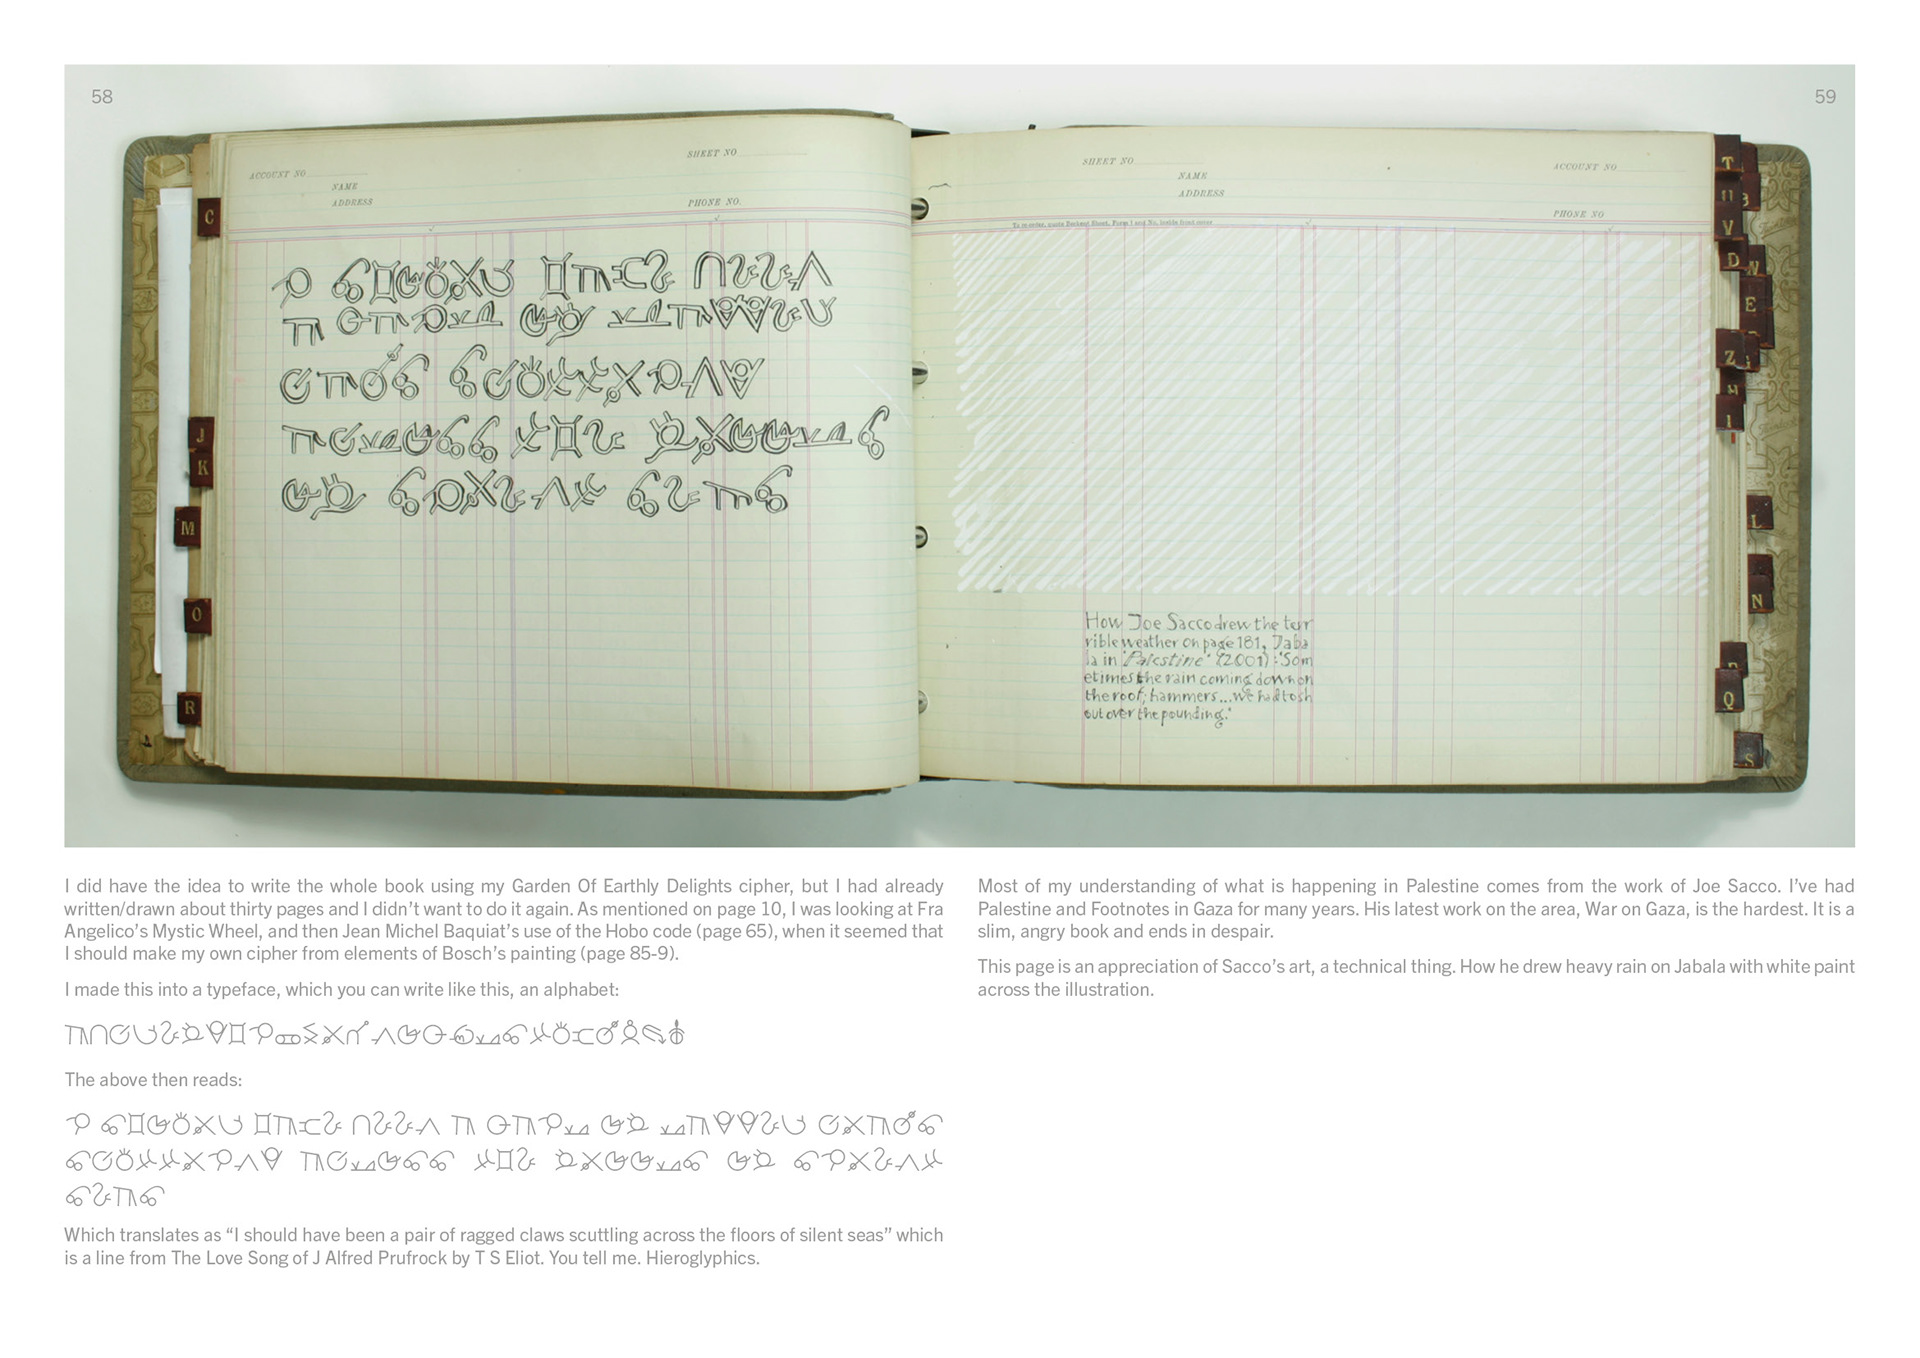 58
59
SHEET NO
ACCOUNT NO
NAME
ADDRESS
PHONE NO.
SHEET NO
ACCOUNT NO
NAME
ADDRESS
PHONE NO
C
J
K
M
O
R
T
U
B
V
D
W
E
Z
H
I
L
N
Q
S
How Joe Sacco drew the terr
rible weather on page 181, Jaba
la in 'Palestine' (2001): 'Som
etimes the rain coming down on
the roof; hammers...we had to sh
out over the pounding.'
I did have the idea to write the whole book using my Garden Of Earthly Delights cipher, but I had already
written/drawn about thirty pages and I didn't want to do it again. As mentioned on page 10, I was looking at Fra
Angelico's Mystic Wheel, and then Jean Michel Baquiat's use of the Hobo code (page 65), when it seemed that
I should make my own cipher from elements of Bosch's painting (page 85-9).
I made this into a typeface, which you can write like this, an alphabet:
The above then reads:
Which translates as “I should have been a pair of ragged claws scuttling across the floors of silent seas” which
is a line from The Love Song of J Alfred Prufrock by T S Eliot. You tell me. Hieroglyphics.
Most of my understanding of what is happening in Palestine comes from the work of Joe Sacco. I've had
Palestine and Footnotes in Gaza for many years. His latest work on the area, War on Gaza, is the hardest. It is a
slim, angry book and ends in despair.
This page is an appreciation of Sacco's art, a technical thing. How he drew heavy rain on Jabala with white paint
across the illustration.